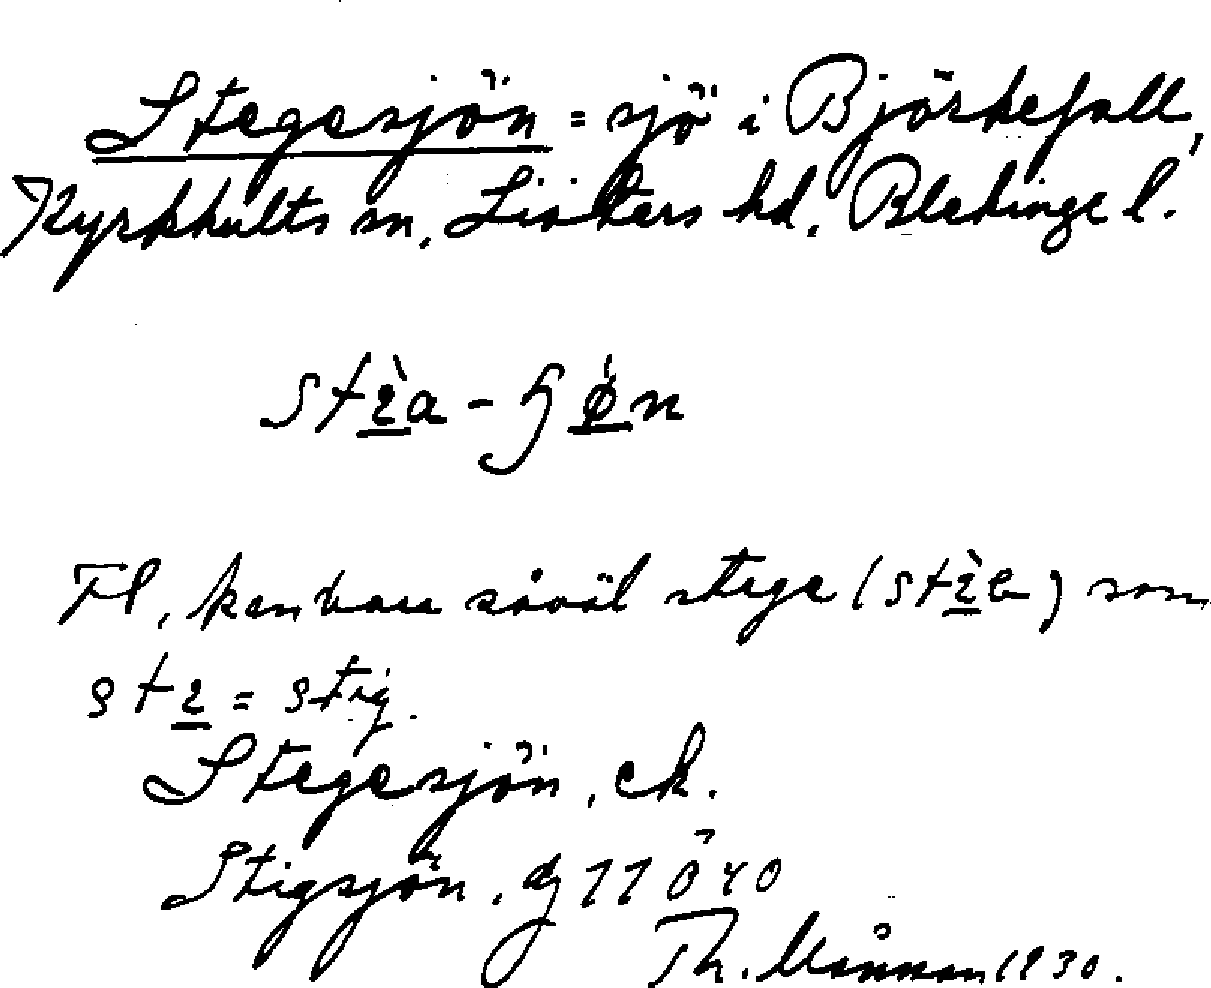 Stegesjön = sjö i Björkefall,
Kyrkhults sn, Listers hd. Blekinge l.
stɩ̀a - ɧǿn
Fl. kan vara såväl stege (stɩ̀a) som
stɩ = stig.
Stegesjön, ek.
Stigsjön, dj 11 ö 40
Th. 1930.